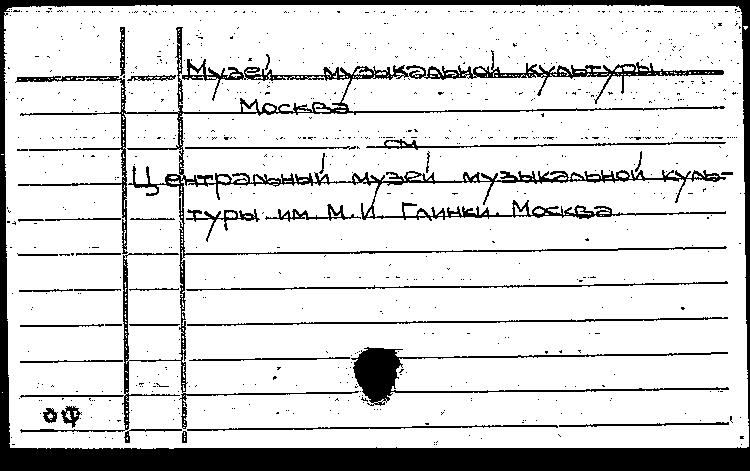 Музей музыкальной культуры.
Москва.
см
Центральный музей музыкальной куль-
туры им. М.И. Глинки. Москва
оф